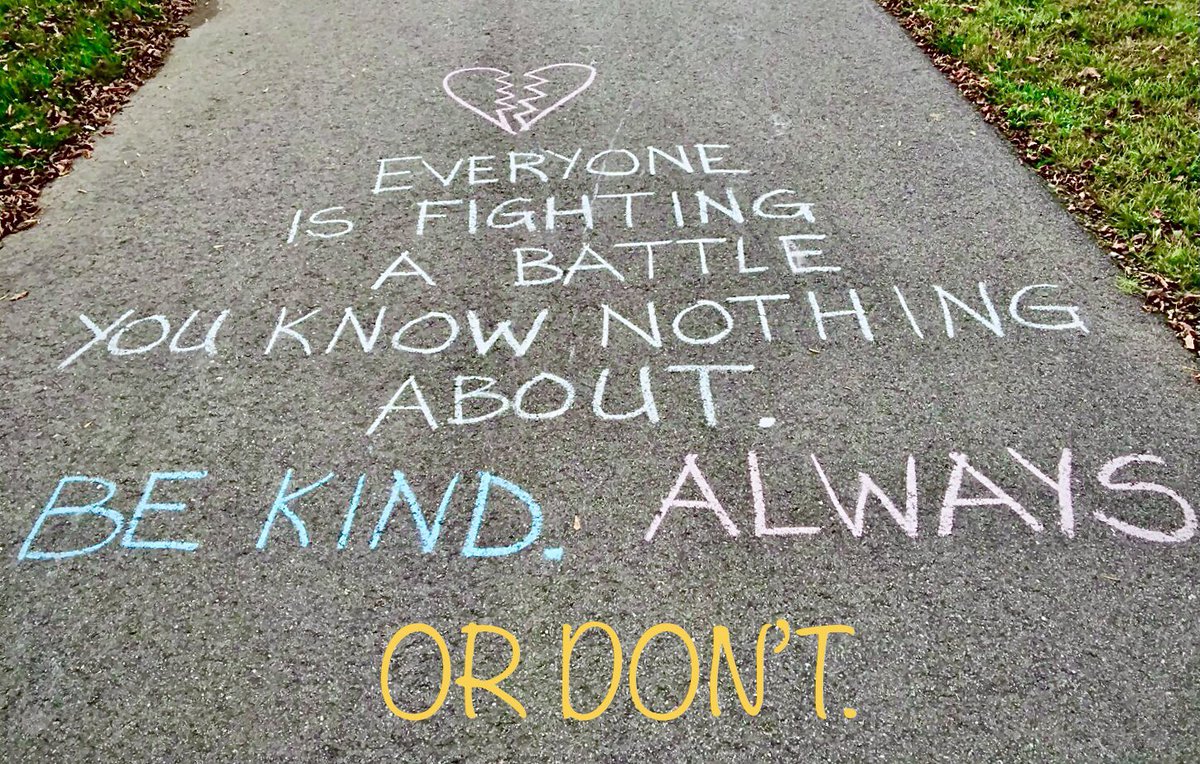 EVERYONE
IS FIGHTING
A BATTLE
YOU KNOW NOTHING
ABOUT.
BE KIND. ALWAYS
OR DON'T.